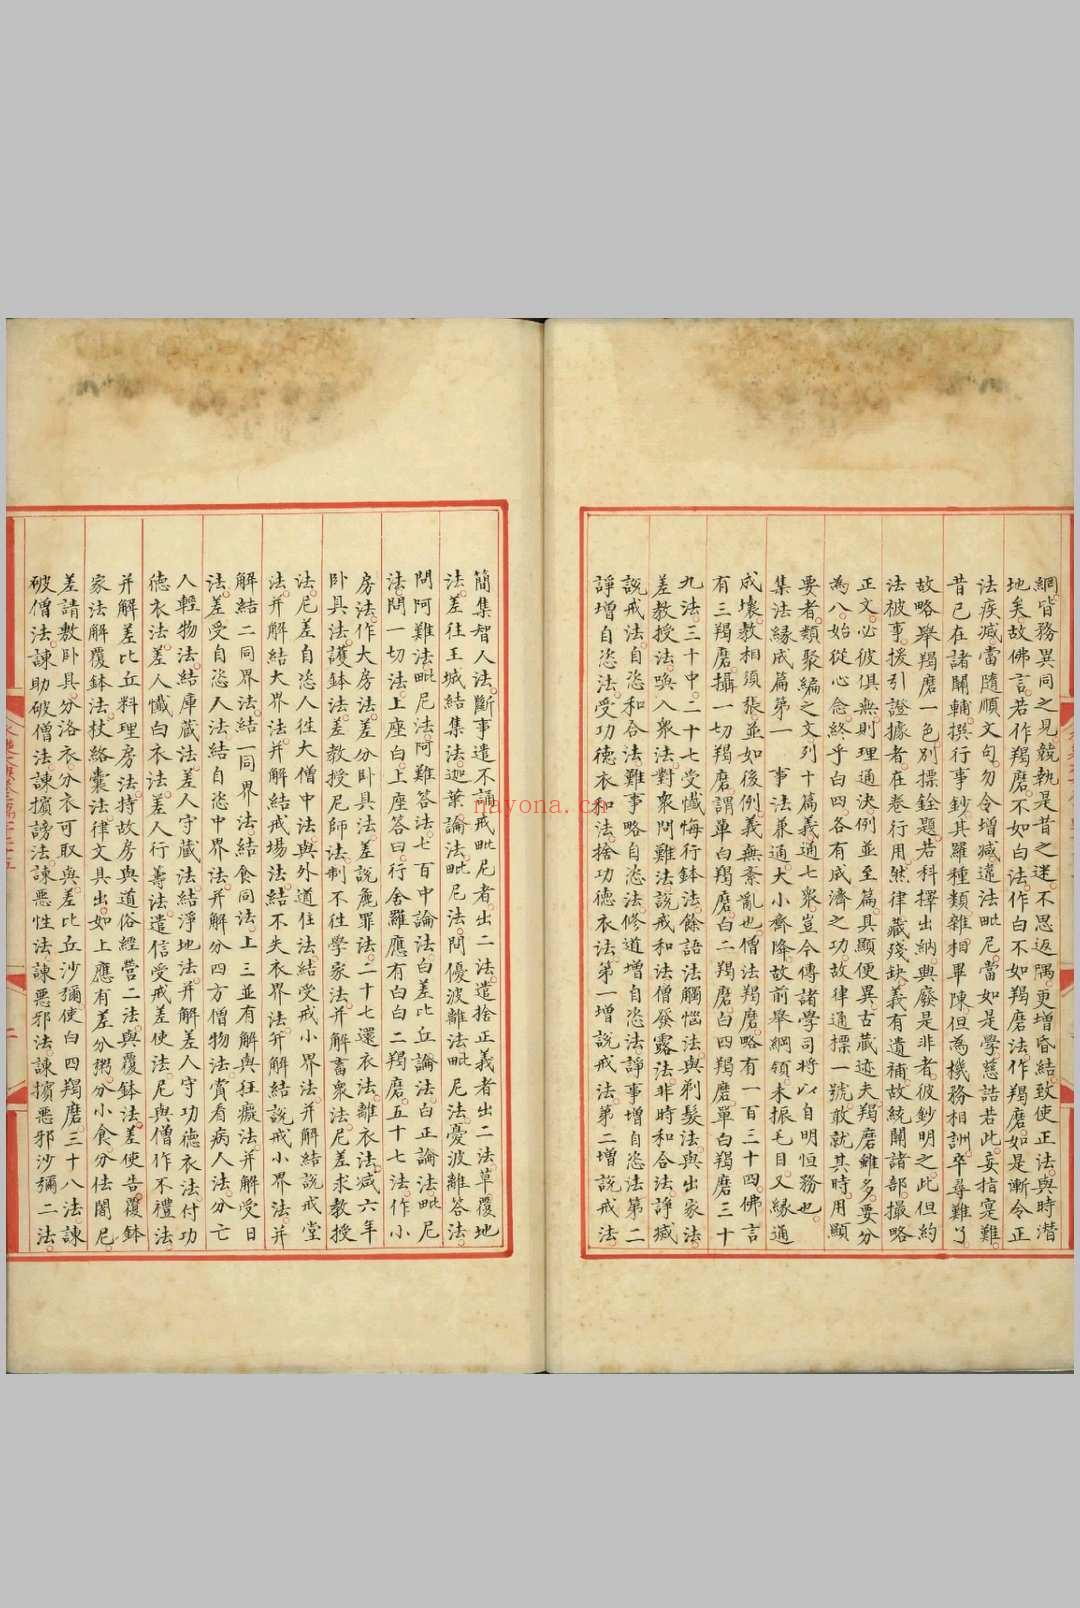 網。皆務異同之見。競執是昔之迷。不思返隅。更增昏結。致使正法與時潛
地矣。故佛言。若作羯磨。不如白法。作白不如羯磨法。作羯磨如是漸令正
法疾滅。當隨順文句。勿令增減違法毗尼。當如是學。慈誥若此。妄指寔難。
昔已在諸關輔。撰行事鈔。其羅種類雜相畢陳。但為機務相訓。卒尋難了。
故略舉羯磨一色。別標銓題。若科擇出納。興廢是非者。彼鈔明之。此但約
法被事。援引證據者。在卷行用。然律藏殘缺。義有遺補。故統關諸部。撮略
正文。必彼俱無。則理通決例。並至篇具顯。便異古藏迹。夫羯磨雖多。要分
為八。始從心念。終乎白四。各有成濟之功。故律通標一號。敢就其時用顯
要者。類聚編之。文列十篇。義通七衆。豈今傳諸學司。將以自明恒務也。
集法緣成篇第一 事法兼通。大小齊降。故前舉綱領。未振毛目。又緣通
成壞。教相須張。並如後例。義無紊亂也。僧法羯磨。略有一百三十四。佛言
有三羯磨。攝一切羯磨。謂單白羯磨。白二羯磨。白四羯磨。單白羯磨三十
九法。三十中。二十七受懺悔。行鉢法。餘語法。觸惱法。與剃髮法。與出家法。
差教授法。喚入衆法。對衆問難法。說戒和法。僧發露法。非時和合法。諍滅
說戒法。自恣和合法。難事略自恣法。修道增自恣法。諍事增自恣法第二
諍增自恣法。受功德衣和法。捨功德衣法。第一增說戒法。第二增說戒法。
簡集智人法。斷事遣不誦戒毗尼者。出二法。遣捨正義者。出二法。草覆地
法。差往王城結集法。迦葉論法。毗尼法。問優波離法。毗尼法。憂波離答法。
問阿難法。毗尼法。阿難答法。七百中論法。白差比丘論法。白正論法。毗尼
法。問一切法。上座白上座答曰。行舍羅應有白。白二羯磨五十七法。作小
房法。作大房法。差分卧具法。差說麁罪法。二十七還衣法。離衣法。減六年
卧具法。護鉢法。差教授尼師法。制不往學家法。并解畜衆法。尼差求教授
法。尼差自恣人往大僧中法。與外道住法。結受戒小界法。并解結說戒堂
法。并解結大界法。并解結戒場法。結不失衣界法。并解結說戒小界法。并
解結二同界法。結一同界法。結食同法。上三並有解。與狂癡法。并解受日
法。差受自恣人法。結自恣中界法。并解分四方僧物法。賞看病人法。分亡
人輕物法。結庫藏法。差人守藏法。結淨地法。并解差人守功德衣法。付功
德衣法。差人懺白衣法。差人行籌法。遣信受戒差使法。尼與僧作不禮法。
并解差比丘料理房法。持故房與道俗經營二法。與覆鉢法。差使告覆鉢
家法。解覆鉢法。杖絡囊法。律文具出。如上應有差分粥。分小食。分佉闍尼。
差請敷卧具。分洛衣。分衣可取與。差比丘沙彌使。白四羯磨三十八法。諫
破僧法。諫助破僧法。諫擯謗法。諫惡性法。諫惡邪法。諫擯惡邪沙彌二法。
nayona.cn